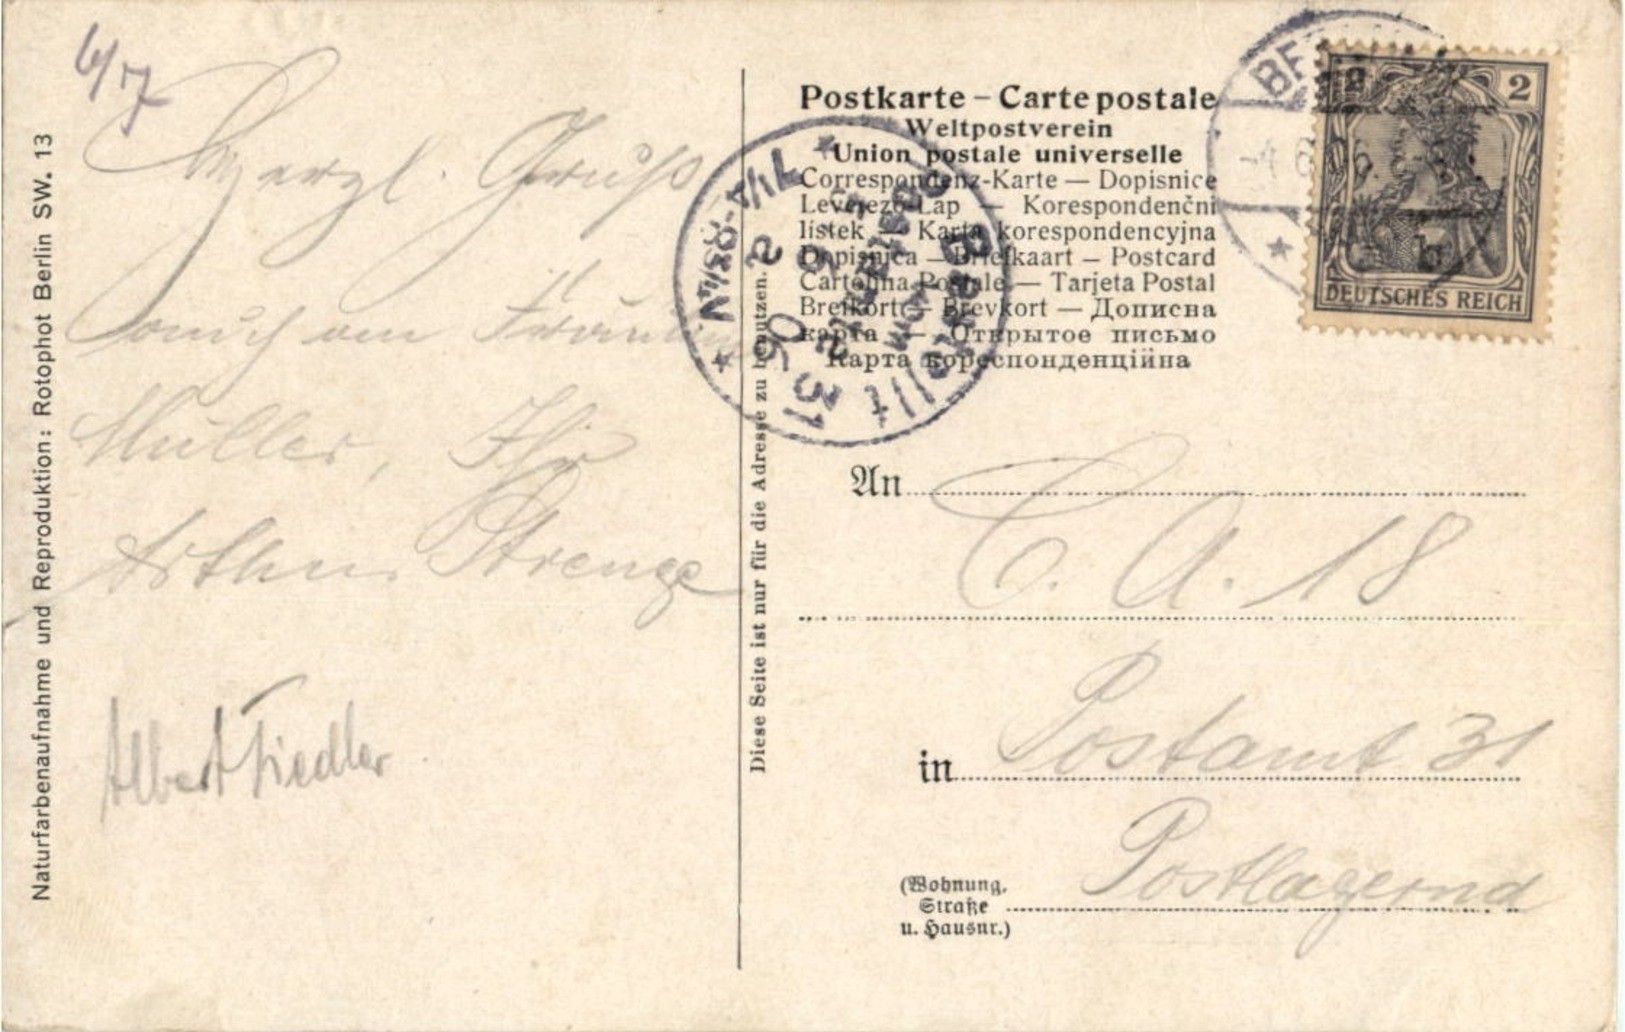 6/7
Herzl. Gruß
auch an Fräulein
Müller, Ihr
Arthur Strenge
Albert Fiedler
Naturfarbenaufnahme und Reproduktion: Rotophot Berlin SW. 13
Diese Seite ist nur für die Adresse zu benutzen.
Postkarte – Carte postale
Weltpostverein
Union postale universelle
Correspondenz-Karte — Dopisnice
Levelező-Lap — Korespondenční
listek — Karta korespondencyjna
Dopisnica — Briefkaart — Postcard
Cartolina Postale — Tarjeta Postal
Brefkort — Brevkort — Дописна
карта — Открытое письмо
Карта кореспонденційна
2 2
DEUTSCHES REICH
b
Bestellt
vom
Postamte
31
An C. A. 18
in Postamt 31
(Wohnung, Straße u. Hausnr.) Postlagernd